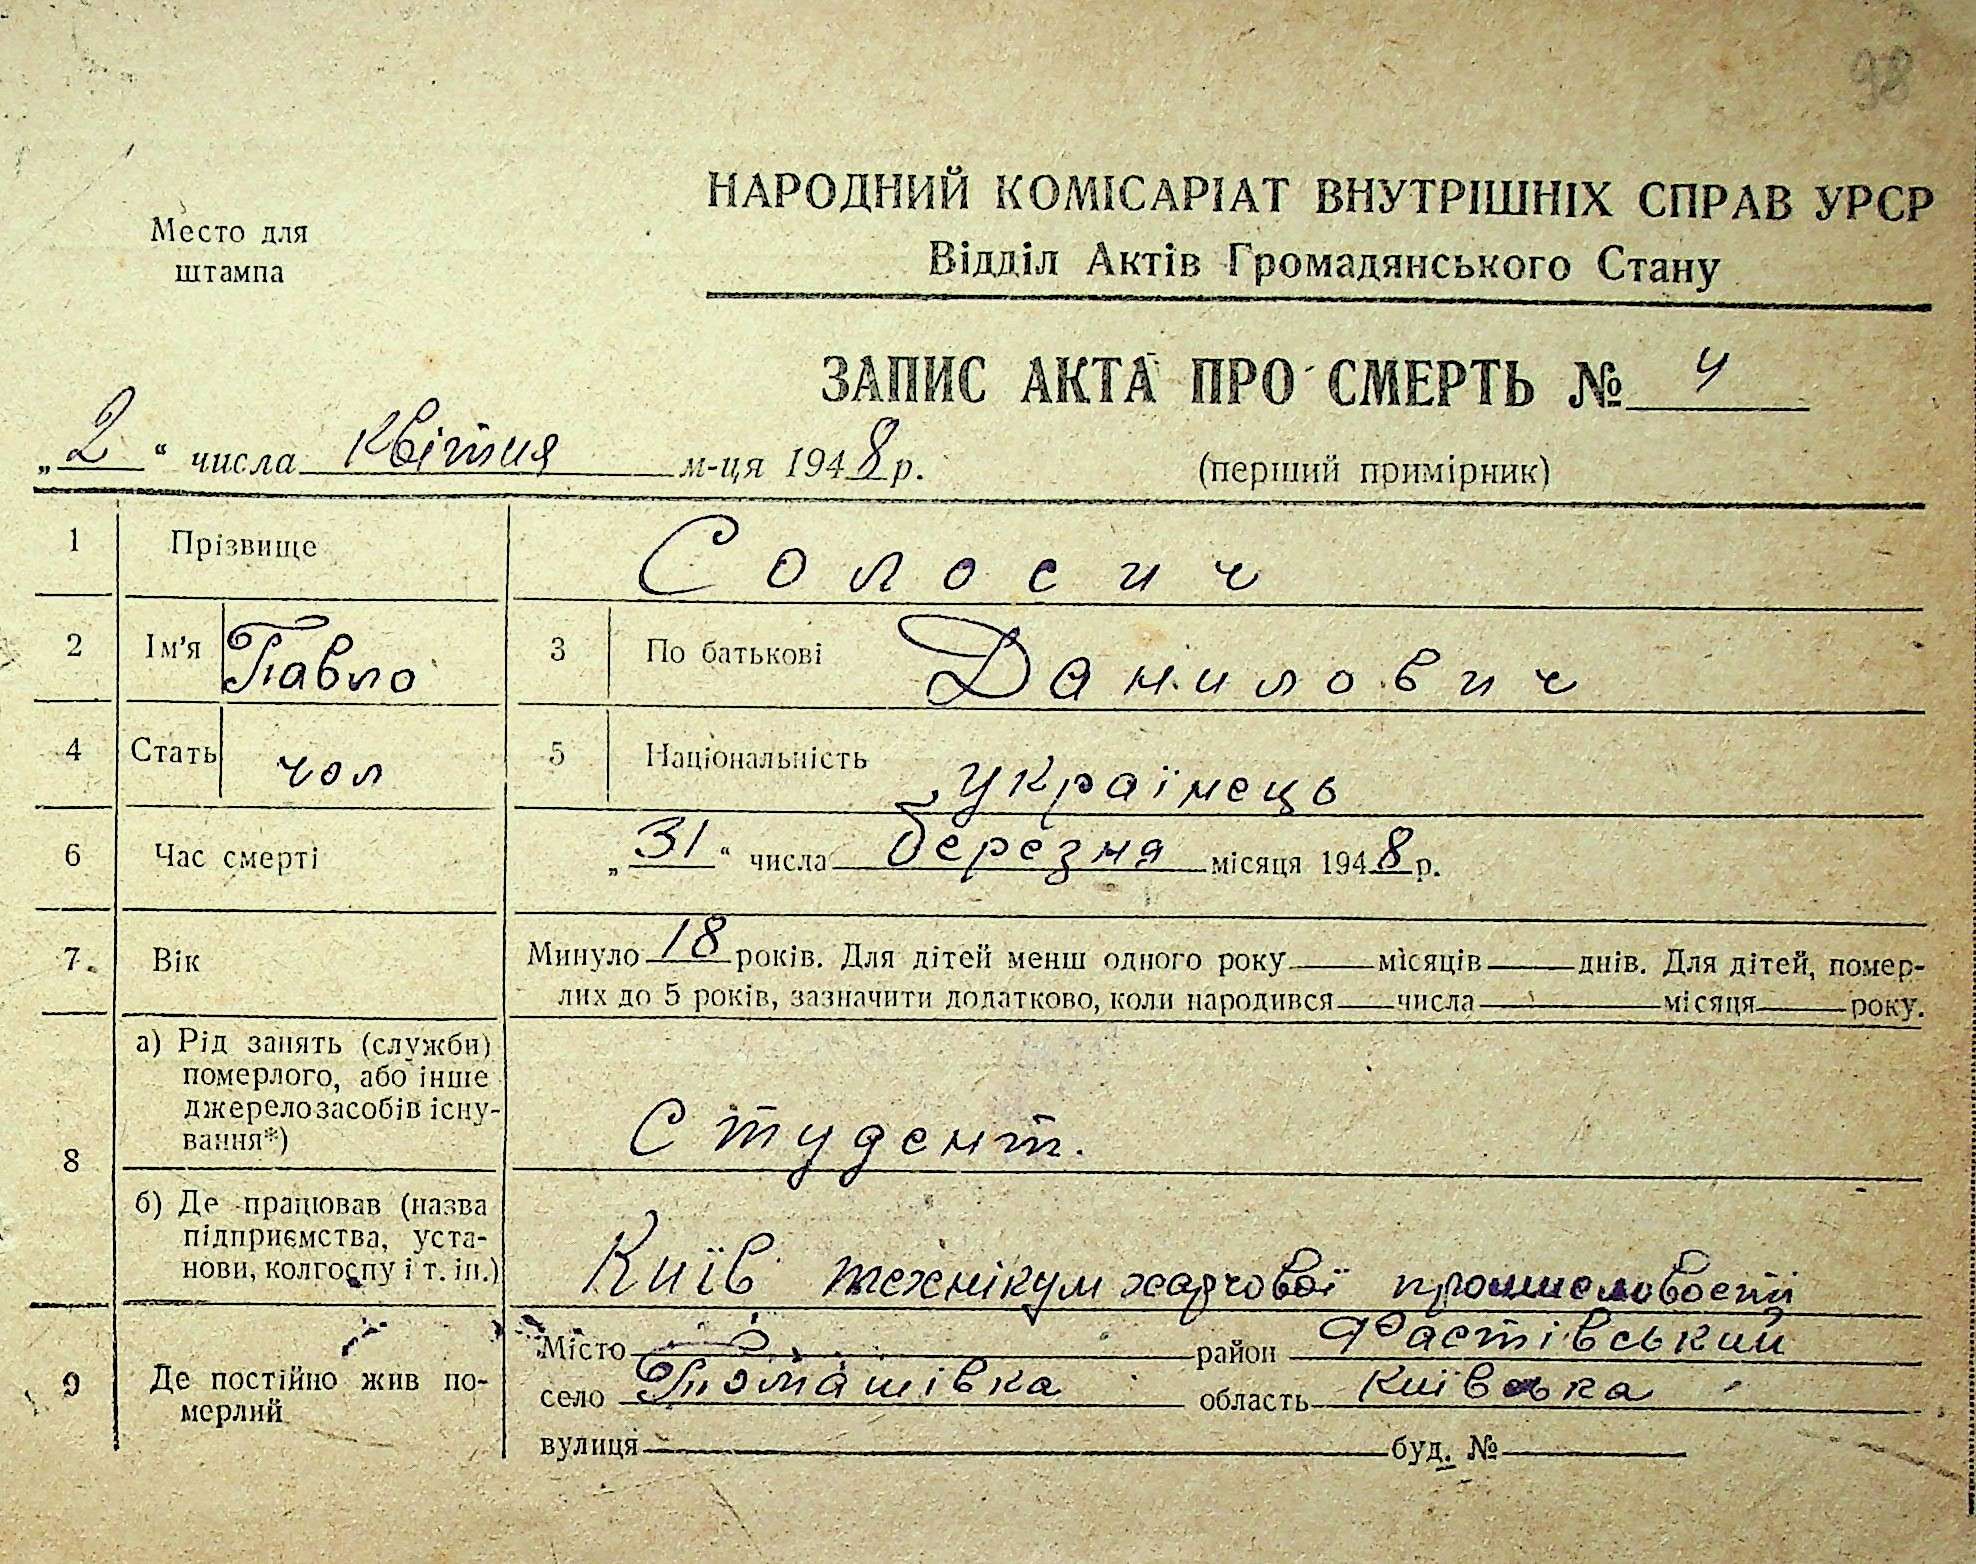 98
НАРОДНИЙ КОМІСАРІАТ ВНУТРІШНІХ СПРАВ УРСР
Место для штампа
Відділ Актів Громадянського Стану
ЗАПИС АКТА ПРО СМЕРТЬ № 4
„2“ числа квітня м-ця 1948 р.
(перший примірник)
1 Прізвище Солосич
2 Ім'я Павло 3 По батькові Данилович
4 Стать чол 5 Національність українець
6 Час смерті „31“ числа березня місяця 1948 р.
7. Вік Минуло 18 років. Для дітей менш одного року — місяців — днів. Для дітей, помер-
лих до 5 років, зазначити додатково, коли народився — числа — місяця — року.
8 а) Рід занять (служби)
померлого, або інше
джерело засобів існу-
вання*)
Студент.
б) Де працював (назва
підприємства, уста-
нови, колгоспу і т. ін.)
Київ технікум харчової промисловості
9 Де постійно жив по-
мерлий
Місто район Фастівський
село Томашівка область Київська
вулиця — буд. № —